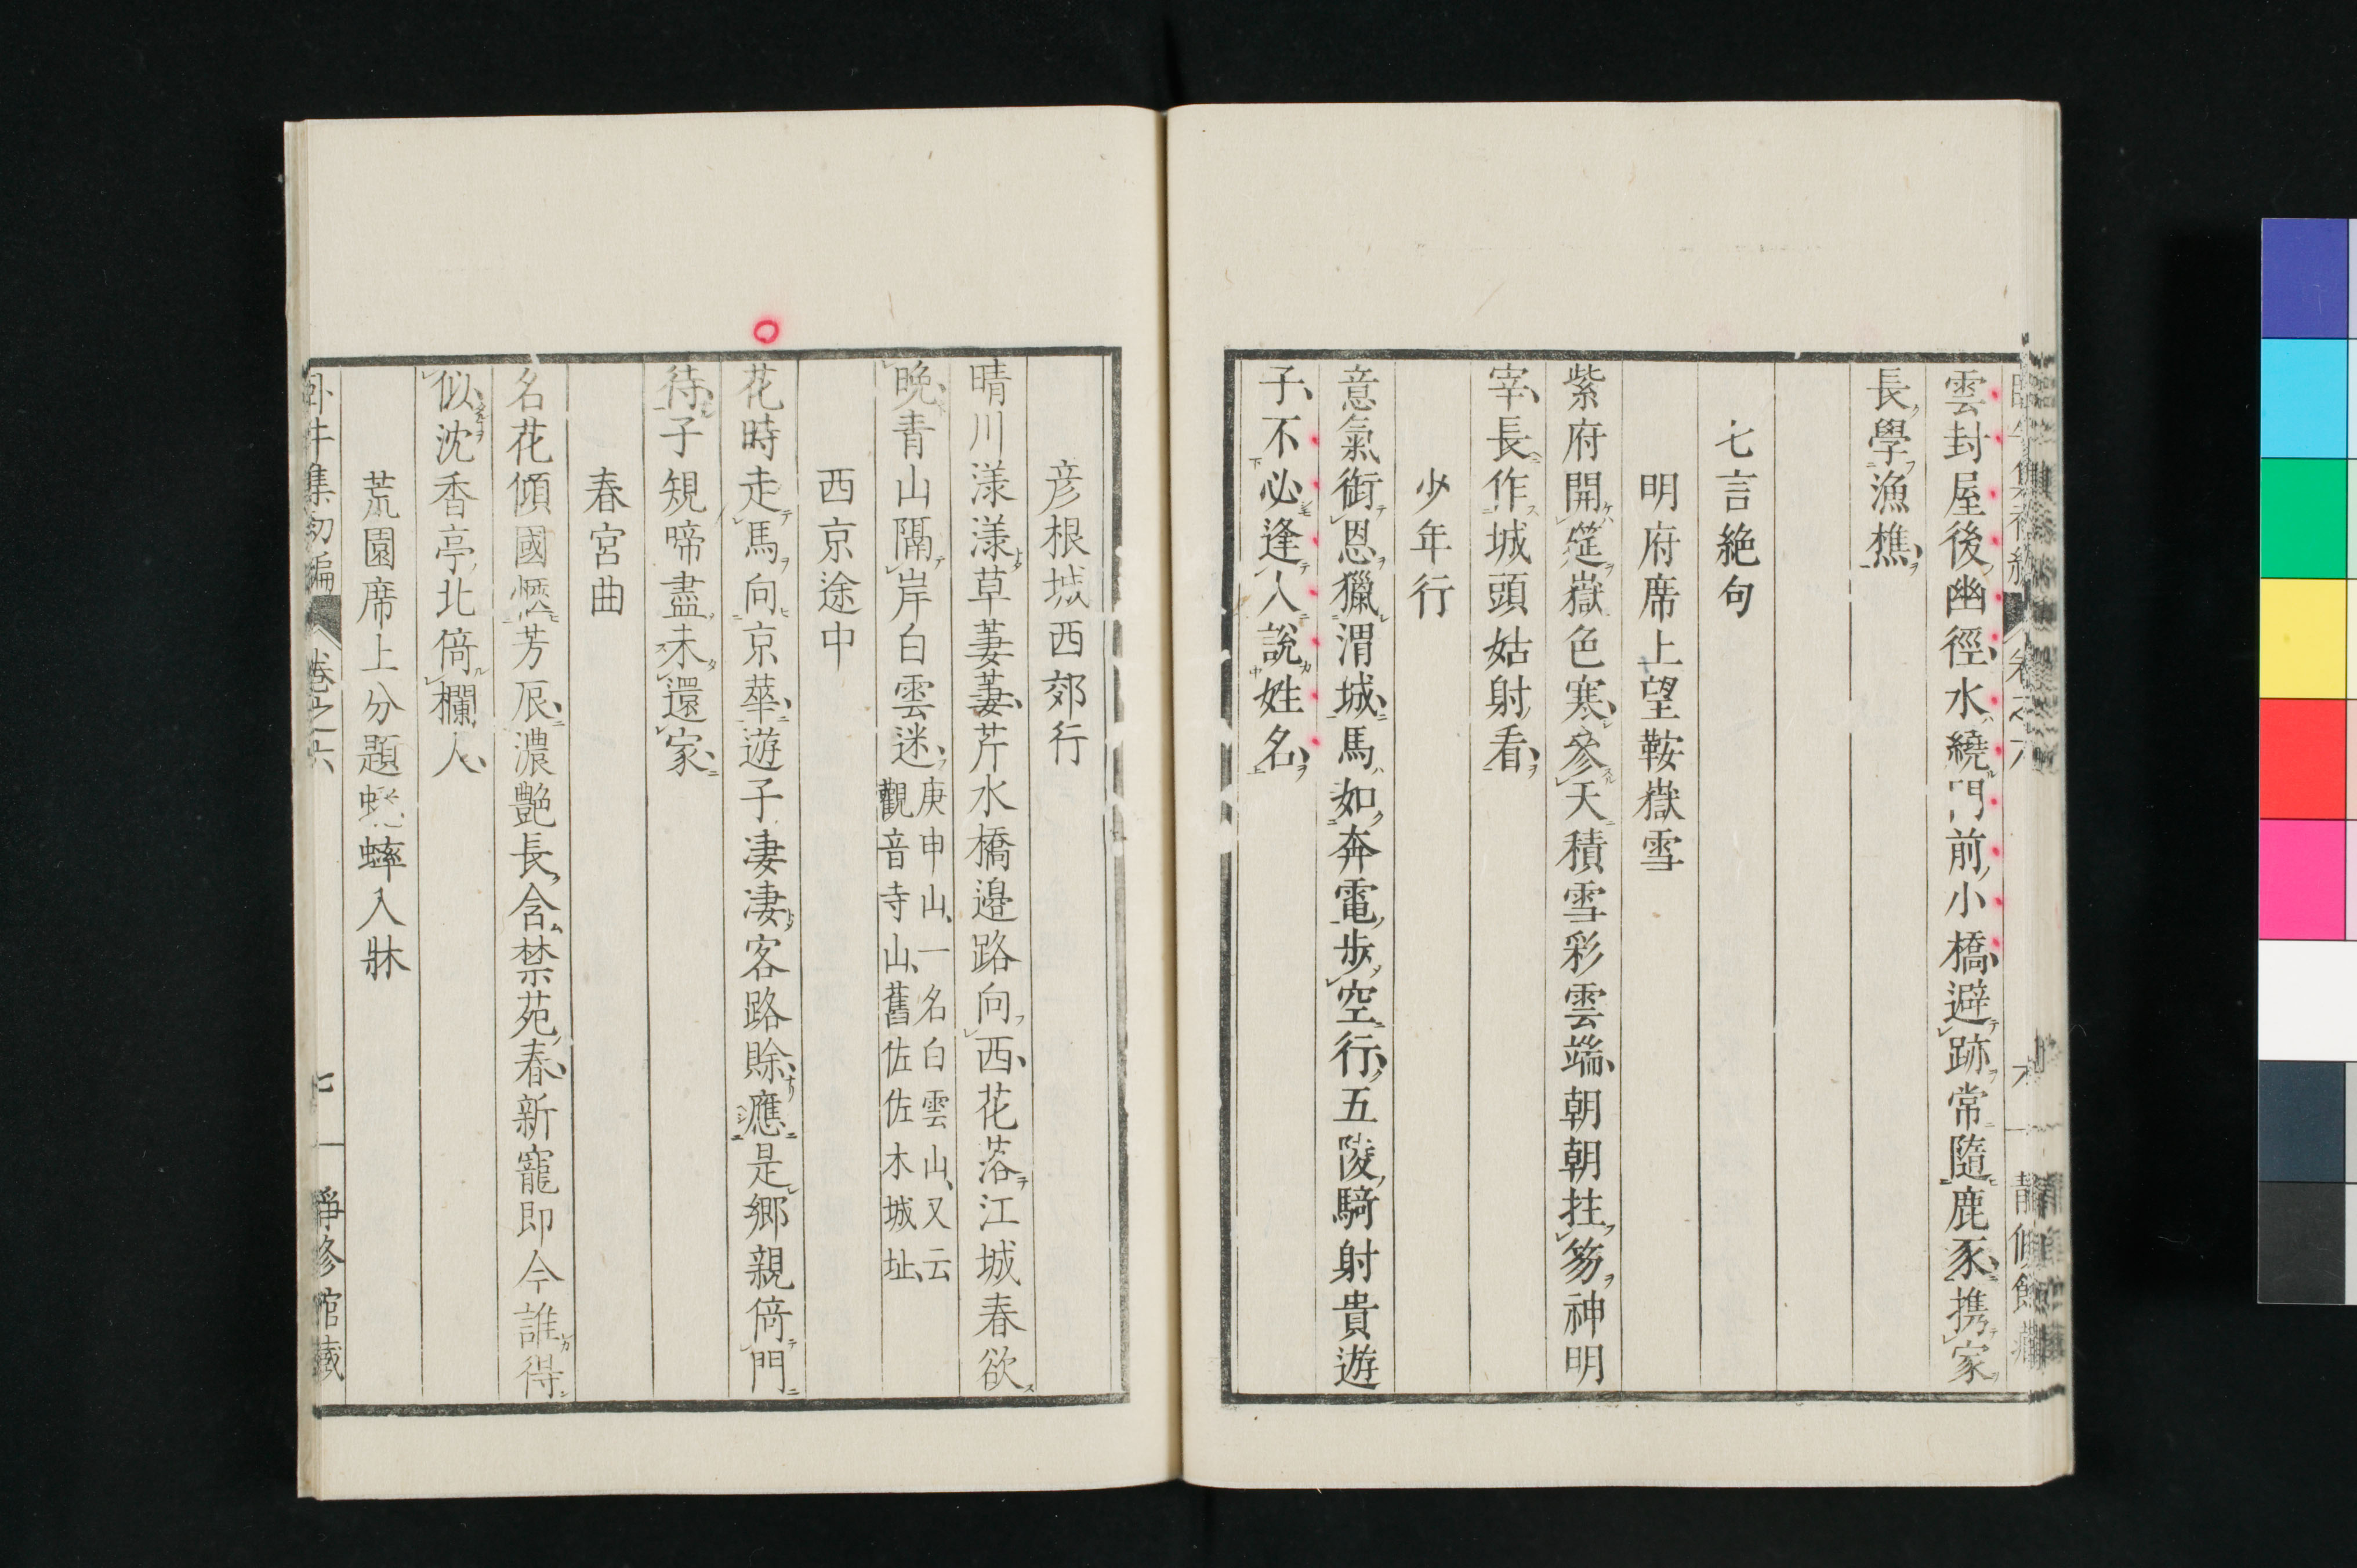 雲封屋後幽徑水繞門前小橋避跡常隨鹿豕携家
長學漁樵
七言絶句
明府席上望鞍嶽雪
紫府開筵嶽色寒參天積雪彩雲端朝朝拄笏神明
宰長作城頭姑射看
少年行
意氣銜恩獵渭城馬如奔電歩空行五陵騎射貴遊
子不必逢人説姓名
彦根城西郊行
晴川漾漾草萋萋芹水橋邉路向西花落江城春欲
晩青山隔岸白雲迷
庚申山一名白雲山又云
觀音寺山舊佐佐木城址
西京途中
花時走馬向京華遊子凄凄客路賖應是郷親倚門
待子規啼盡未還家
春宮曲
名花傾國愜芳辰濃艶長含禁苑春新寵即今誰得
似沈香亭北倚欄人
荒園席上分題蟋蟀入牀
臥牛集初編 卷之六 七 靜修館藏